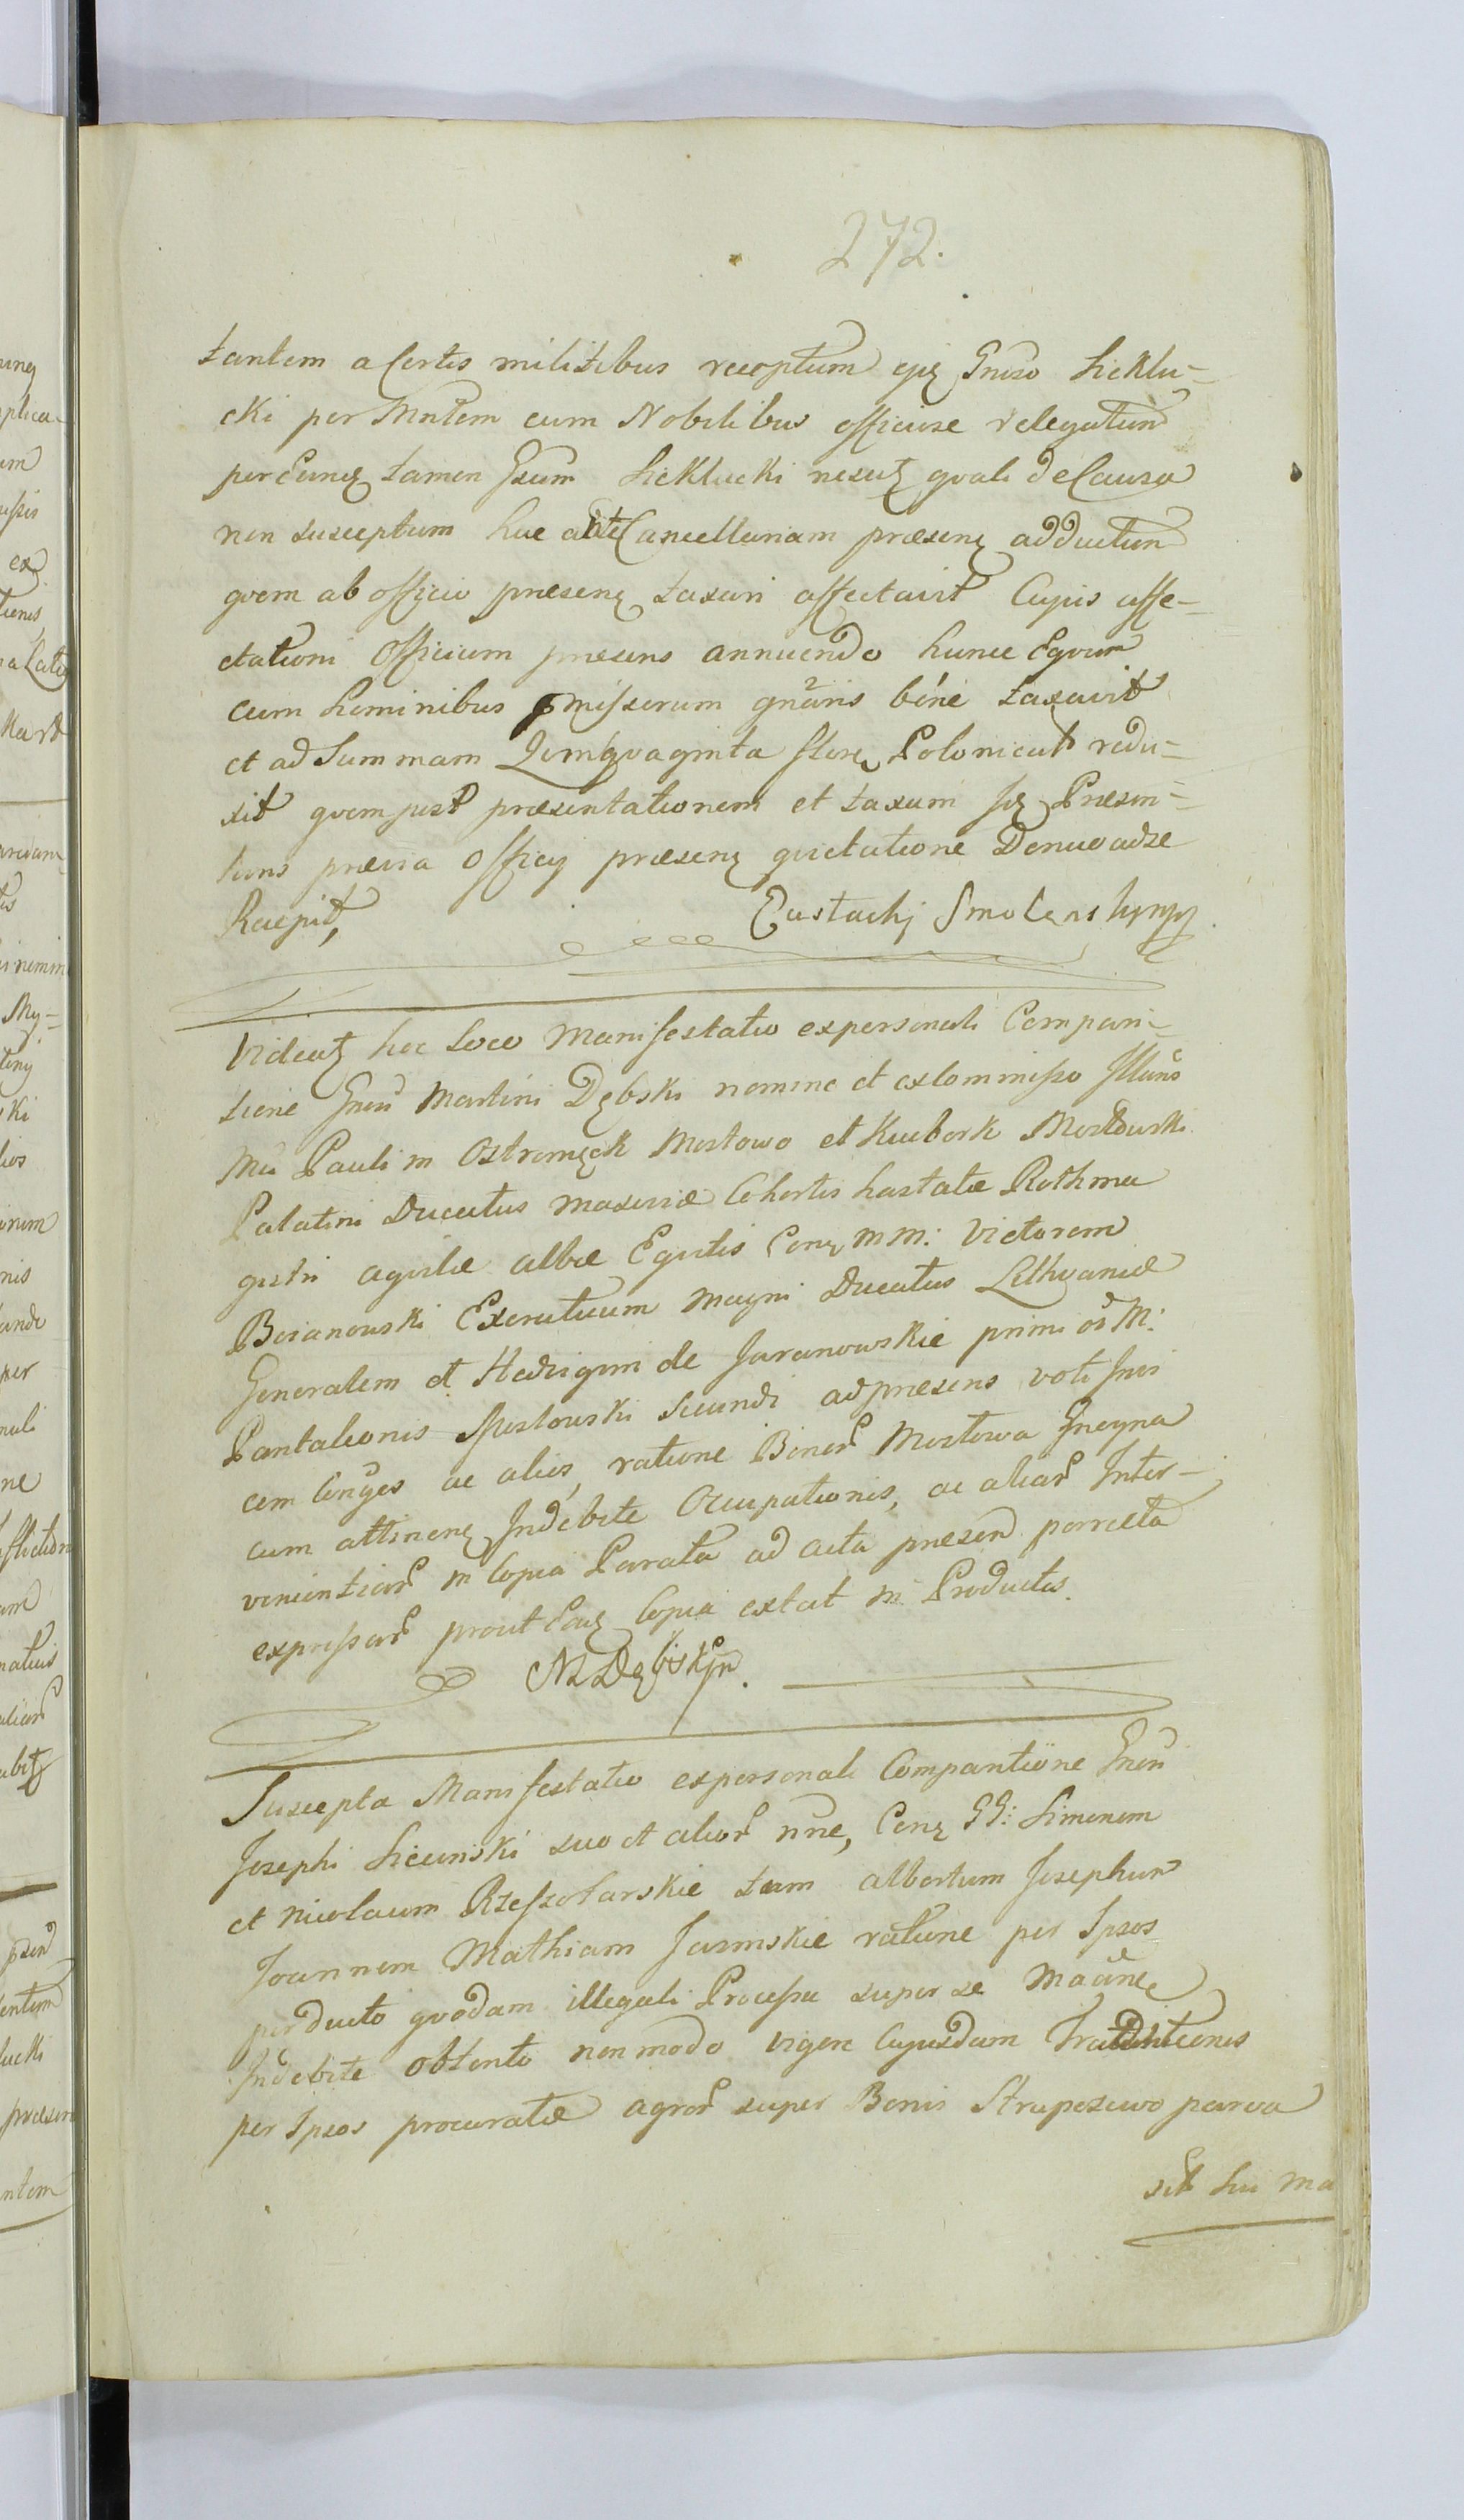 272.
tantem a Certis militibus receptum ejꝫ Gnoso Sieklu-
cki per Mntem cum Nobilibus officiose relegatum
per Eunꝫ tamen Gsum Sieklucki nesciꝫ quali de Causa
non susceptum huc ante Cancellariam præsenꝫ adductum
qvem ab officio præsenꝫ taxari affectavit Cujus affe-
ctationi Officium præsens annuendo hunce Eqvum
cum hominibus præmissorum gnaris bene taxavit
et ad Summam Qvinqvaginta flore Polonical redu-
xit qvem post præsentationem et taxam Präsen-
tans prævia Officij præsenꝫ qvietatione Denuo ad se
Recepit,
Eustachj Smolenskymp
Videatꝫ hoc Loco Manifestatio ex personali Compari-
tione Gnsi Martini Dębski nomine et ex Commisso Illuris
Mci Pauli in Ostromęck Mostowo et Kuubork Mostowski
Palatini Ducatus Masoviæ Cohortis hastatæ Rothma
gistri aqvilæ albæ Eqvitis Conꝫ MM: Victorem
Boianowski Exercituum Magni Ducatus Lithvaniæ
Generalem et Hedvigim de Jaranowskie primi os M:
Pantaleonis Mostowski Secundi ad præsens voti Gnsi
cem Conges ac alios, ratione Bonor Mostowa Gnoyna
cum attinenꝫ Indebite Occupationis, ac aliar Inter-
venientiar in Copia Parata ad acta præsen porrecta
expressar prout Eaꝫ Copia extat in Productis.
MDębski mp.
Suscepta Manifestatio ex personali Comparitione Gnsi
Josephi Siciński suo et alior nne, Conꝫ GG: Simonem
et Nicolaum Rzeszotarskie tum Albertum Josephum
Joannem Mathiam Jasinskie ratione per Ipsos
perducto qvodam illegali Processu super se
Indebite obtento non modo vigore Cujusdam Traditionis
per Ipsos procuratæ agror super Bonis Strupczewo parva
sit Sui Ma